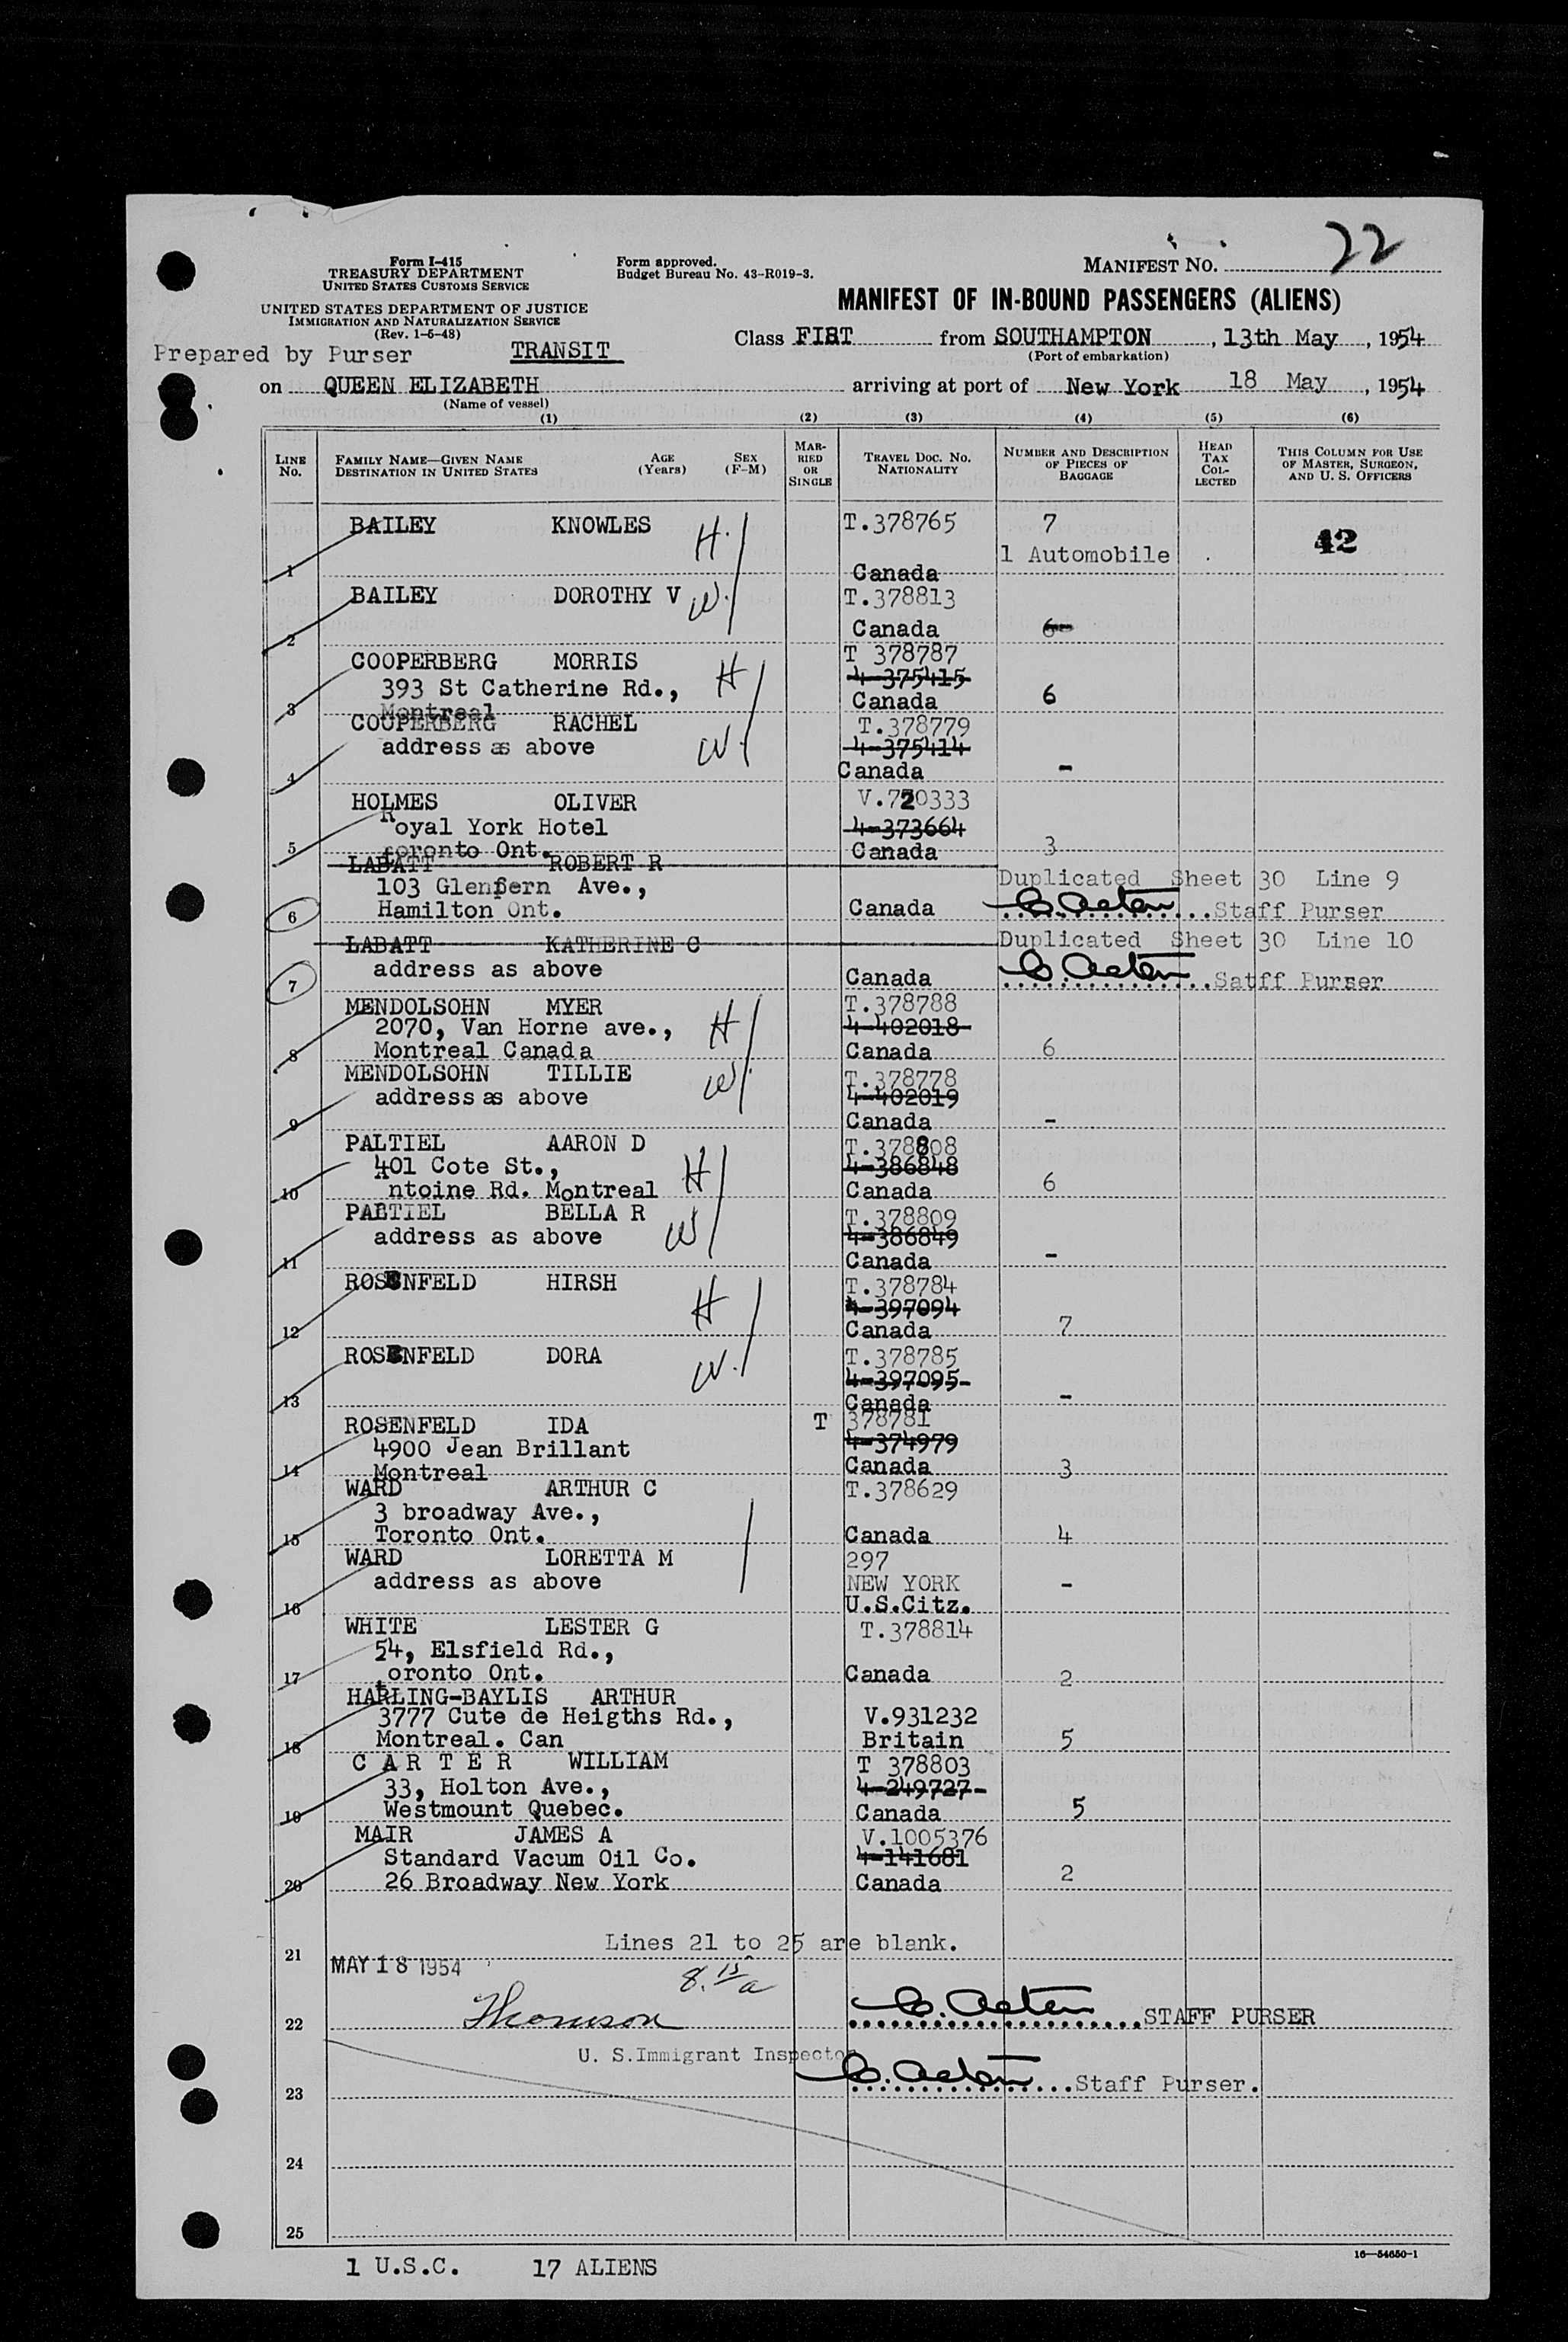 22
Form I-415
TREASURY DEPARTMENT
UNITED STATES CUSTOMS SERVICE
Form approved.
Budget Bureau No. 43-R019-3.
MANIFEST NO.
UNITED STATES DEPARTMENT OF JUSTICE
IMMIGRATION AND NATURALIZATION SERVICE
(Rev. 1-5-48)
MANIFEST OF IN-BOUND PASSENGERS (ALIENS)
Prepared by Purser TRANSIT
Class FIRT from SOUTHAMPTON , 13th May , 1954
(Port of embarkation)
on QUEEN ELIZABETH arriving at port of New York 18 May , 1954
(Name of vessel)
(1) (2) (3) (4) (5) (6)
LINE No. FAMILY NAME—GIVEN NAME DESTINATION IN UNITED STATES AGE (Years) SEX (F-M) MARRIED OR SINGLE TRAVEL DOC. NO. NATIONALITY NUMBER AND DESCRIPTION OF PIECES OF BAGGAGE HEAD TAX COLLECTED THIS COLUMN FOR USE OF MASTER, SURGEON, AND U. S. OFFICERS
BAILEY KNOWLES H. T.378765 7 42
1 Automobile
1 Canada
BAILEY DOROTHY V W. T.378813
2 Canada 6
COOPERBERG MORRIS H T 378787
393 St Catherine Rd., 4-375415
3 Montreal Canada 6
COOPERBERG RACHEL W. T.378779
address as above 4-375414
4 Canada -
HOLMES OLIVER V.720333
Royal York Hotel 4-373664
5 toronto Ont. Canada 3
LABATT ROBERT R
103 Glenfern Ave., Duplicated Sheet 30 Line 9
6 Hamilton Ont. Canada C. Acton Staff Purser
LABATT KATHERINE C Duplicated Sheet 30 Line 10
address as above
7 Canada C. Acton Satff Purser
MENDOLSOHN MYER H T.378788
2070, Van Horne ave., 4-402018
8 Montreal Canada Canada 6
MENDOLSOHN TILLIE W T.378778
address as above 4-402019
9 Canada -
PALTIEL AARON D H T.378808
401 Cote St., 4-386848
10 ntoine Rd. Montreal Canada 6
PALTIEL BELLA R W T.378809
address as above 4-386849
11 Canada -
ROSENFELD HIRSH H T.378784
4-397094
12 Canada 7
ROSENFELD DORA W. T.378785
4-397095
13 Canada -
ROSENFELD IDA T 378781
4900 Jean Brillant 4-374979
14 Montreal Canada 3
WARD ARTHUR C T.378629
3 broadway Ave.,
15 Toronto Ont. Canada 4
WARD LORETTA M 297
address as above NEW YORK -
16 U.S.Citz.
WHITE LESTER G T.378814
54, Elsfield Rd.,
17 toronto Ont. Canada 2
HARLING-BAYLIS ARTHUR
3777 Cute de Heigths Rd., V.931232
18 Montreal. Can Britain 5
C A R T E R WILLIAM T 378803
33, Holton Ave., 4-249727
19 Westmount Quebec. Canada 5
MAIR JAMES A V.1005376
Standard Vacum Oil Co. 4-141681
20 26 Broadway New York Canada 2
Lines 21 to 25 are blank.
21
MAY 18 1954 8.15a
Thomson C. Acton STAFF PURSER
22
U. S.Immigrant Inspector
C. Acton Staff Purser.
23
24
25
16—54650-1
1 U.S.C. 17 ALIENS